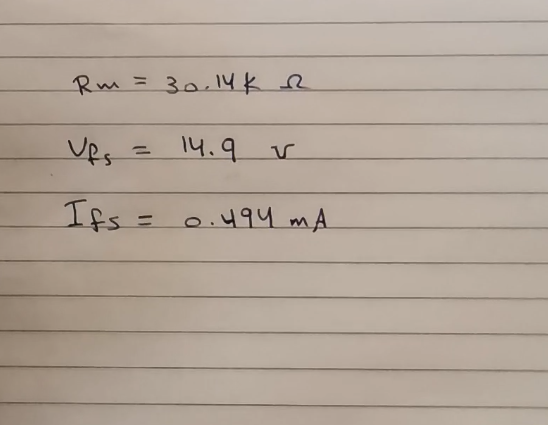 Rm = 30.14k Ω
Vfs = 14.9 v
Ifs = 0.494 mA